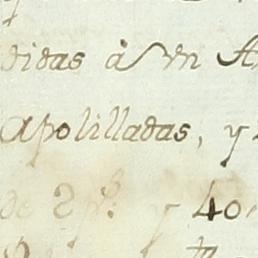 didas à un A
Apolilladas, y
de 2 p.s y 40